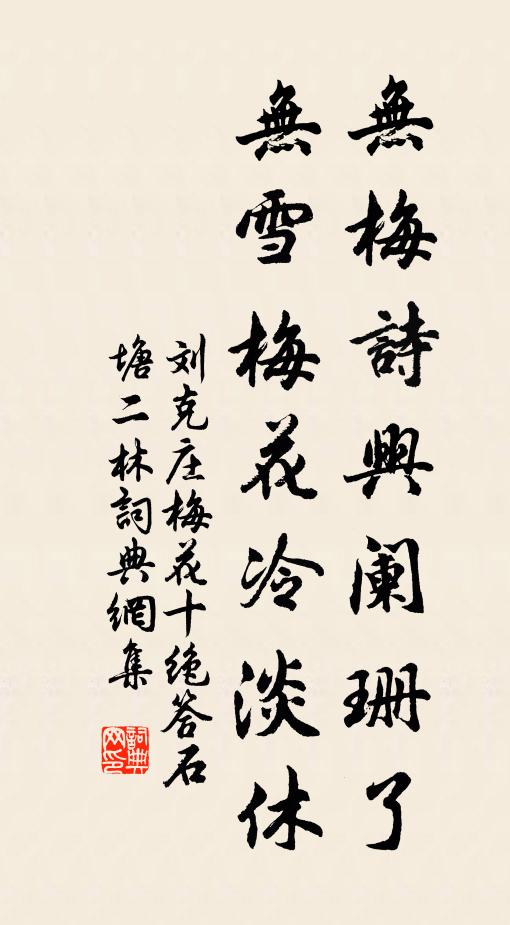 無梅詩興阑珊了
無雪梅花冷淡休
刘克庄梅花十绝答石
塘二林詞典網集
詞典
网印